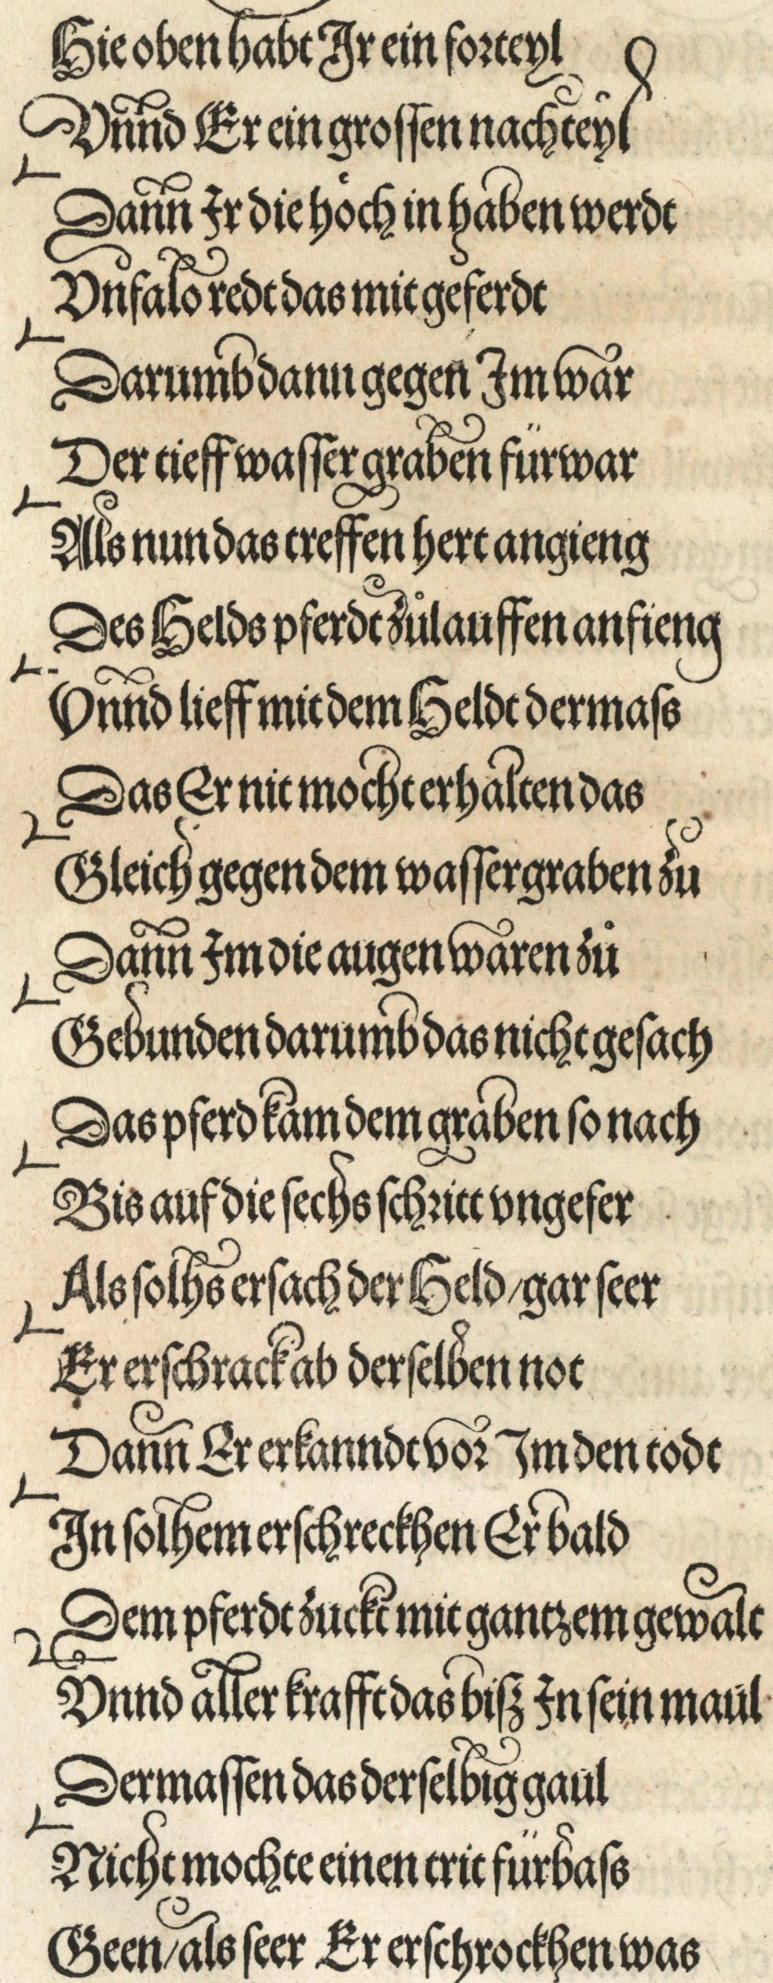 Hie oben habt Jr ein forteyl
Vnnd Er ein grossen nachteyl
Dann Jr die höch in haben werdt
Vnfalo redt das mit geferdt
Darumb dann gegen Jm war
Der tieff wasser graben fürwar
Als nun das treffen hert angieng
Des Helds pferdt zůlauffen anfieng
Vnnd lieff mit dem Heldt dermass
Das Er nit mocht erhalten das
Gleich gegen dem wassergraben zu
Dann Jm die augen waren zů
Gebunden darumb das nicht gesach
Das pferd kam dem graben so nach
Bis auf die sechs schritt vngefer
Als solhs ersach der Held/gar seer
Er erschrack ab derselben not
Dann Er erkanndt vor Jm den todt
Jn solhem erschreckhen Er bald
Dem pferdt zuckt mit gantzem gewalt
Vnnd aller krafft das biſz Jn sein maul
Dermassen das derselbig gaul
Nicht mochte einen trit fürbass
Geen/als seer Er erschrockhen was